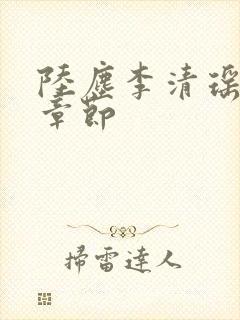 陸塵李清瑶
章節
掃雷達人